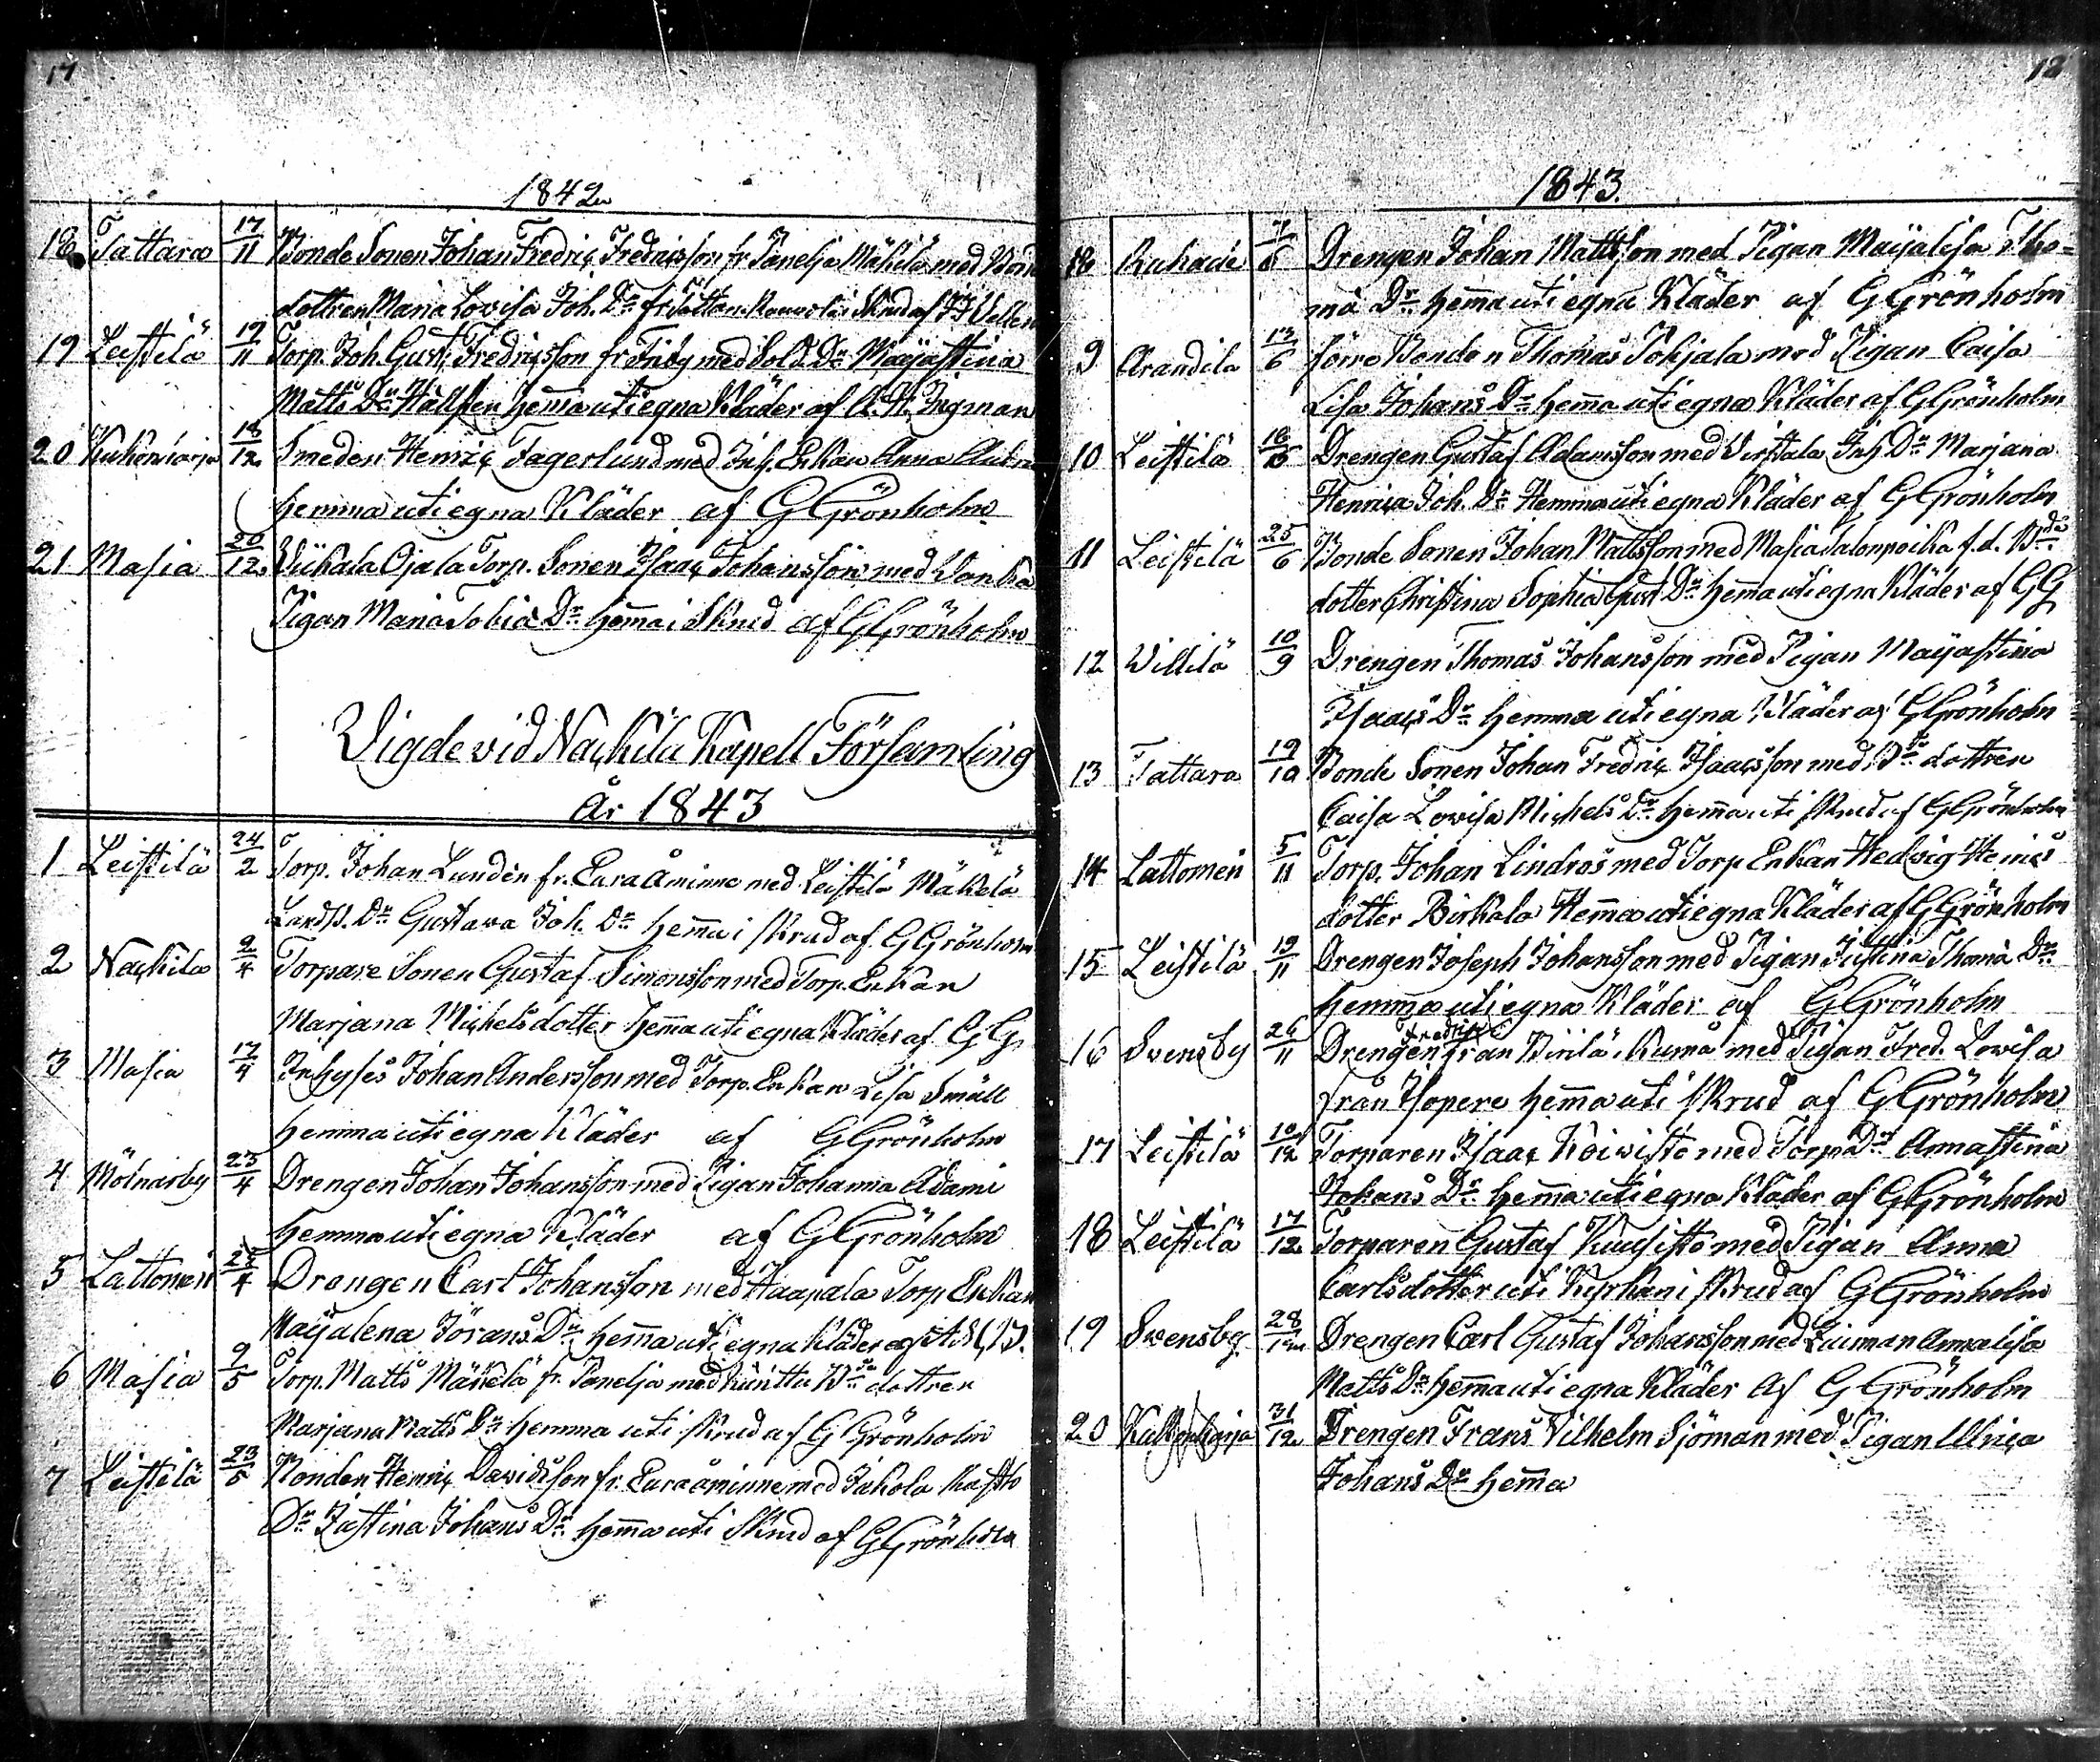 17
1842
18 Tattara 17/11 Bonde Sonen Johan Fredric Fredricsson fr Panelja Mäkilä med Bond
dottren Maria Lovisa Joh. Dr fr Tattara i Skrud af
19 Leistilä 19/11 Torp. Joh Gust. Fredricsson fr Friby med Sold. Dr Majastina
Matts Dr Hällsten hemma uti egna Kläder af A. W. Ingman
20 Kukonharja 18/12 Smeden Henric Fagerlund med Inh. Enkan Anna
hemma uti egna Kläder af G Grönholm
21 Masia 20/12 Viikala Ojala Torp. Sonen Isaac Johansson med
Pigan Maria Tobiæ Dr hemma i Skrud af G Grönholm
Vigde vid Nackila Kapell Församling
År 1843
1 Leistilä 24/2 Torp. Johan Lundén fr. Eura Åminne med Leistilä Mäkelä
Dr Gustava Joh. Dr hemma i skrud af G Grönholm
2 Nackila 2/4 Torpare Sonen Gustaf Simonsson med Torp. Enkan
Marjana Michelsdotter hemma uti egna Kläder af GG
3 Masia 17/4 Inhyses Johan Andersson med Torp. Enkan Lisa Småll
hemma uti egna Kläder af G Grönholm
4 Mölnarby 23/4 Drengen Johan Johansson med Pigan Johanna Adami
hemma uti egna Kläder af G Grönholm
5 Lattomeri 25/4 Drengen Carl Johansson med Haapala Torp Enkan
Majalena Jörans Dr hemma uti egna Kläder af
6 Masia 9/5 Torp. Matts Mäkelä fr. Panelja med Kiinttu Bde dottren
Marjana Matts Dr hemma uti skrud af G Grönholm
7 Leistilä 23/5 Bonden Henric Davidsson fr. Euraåminne med Jakola
Dr Justina Johans Dr hemma uti Skrud af G Grönholm
18
1843.
8 Ruhade 7/6 Drengen Johan Mattsson med Pigan Majalisa Tho=
mä Dr hemma uti egna Kläder af G Grönholm
9 Arandila 13/6 förre Bonden Thomas Pohjala med Pigan Caisa
Lisa Johans Dr hemma uti egna Kläder af G Grönholm
10 Leistilä Drengen Gustaf Adamsson med Inh Dr Marjana
Henrica Joh. Dr Hemma uti egna Kläder af G Grönholm
11 Leistilä 25/6 Bonde Sonen Johan Mattsson med Masia Salonpoika f.d. Bde
dotter Christina Sophia Gust Dr hemma uti egna Kläder af GG
12 Villilä 10/9 Drengen Thomas Johansson med Pigan Majastina
Isaacs Dr hemma uti egna Kläder af G Grönholm
13 Tattara 19/10 Bonde Sonen Johan Fredric Isaacsson med Bde dottren
Caisa Lovisa Michels Dr hemma uti skrud af G Grönholm
14 Lattomeri 5/11 Torp. Johan Lindros med Torp Enkan Hedvig Henrics
dotter Birkala Hemma uti egna Kläder af G Grönholm
15 Leistilä 19/11 Drengen Joseph Johansson med Pigan Justina Thomä Dr
hemma uti egna Kläder af G Grönholm
16 Svensby 26/11 Drengen Fredric från Kumå med Pigan Fred. Lovisa
från hemma uti skrud af G Grönholm
17 Leistilä 10/12 Torparen Isaac Koivisto med Torp Dr Annastina
Johans Dr hemma uti egna Kläder af G Grönholm
18 Leistilä 17/12 Torparen Gustaf Kuusisto med Pigan Anna
Carlsdotter uti Kyrkan i skrud af G Grönholm
19 Svensby 28/12 Drengen Carl Gustaf Johansson med Annalisa
Matts Dr hemma uti egna Kläder af G Grönholm
20 Kukonharja 31/12 Drengen Frans Vilhelm Sjöman med Pigan Ulrica
Johans Dr hemma